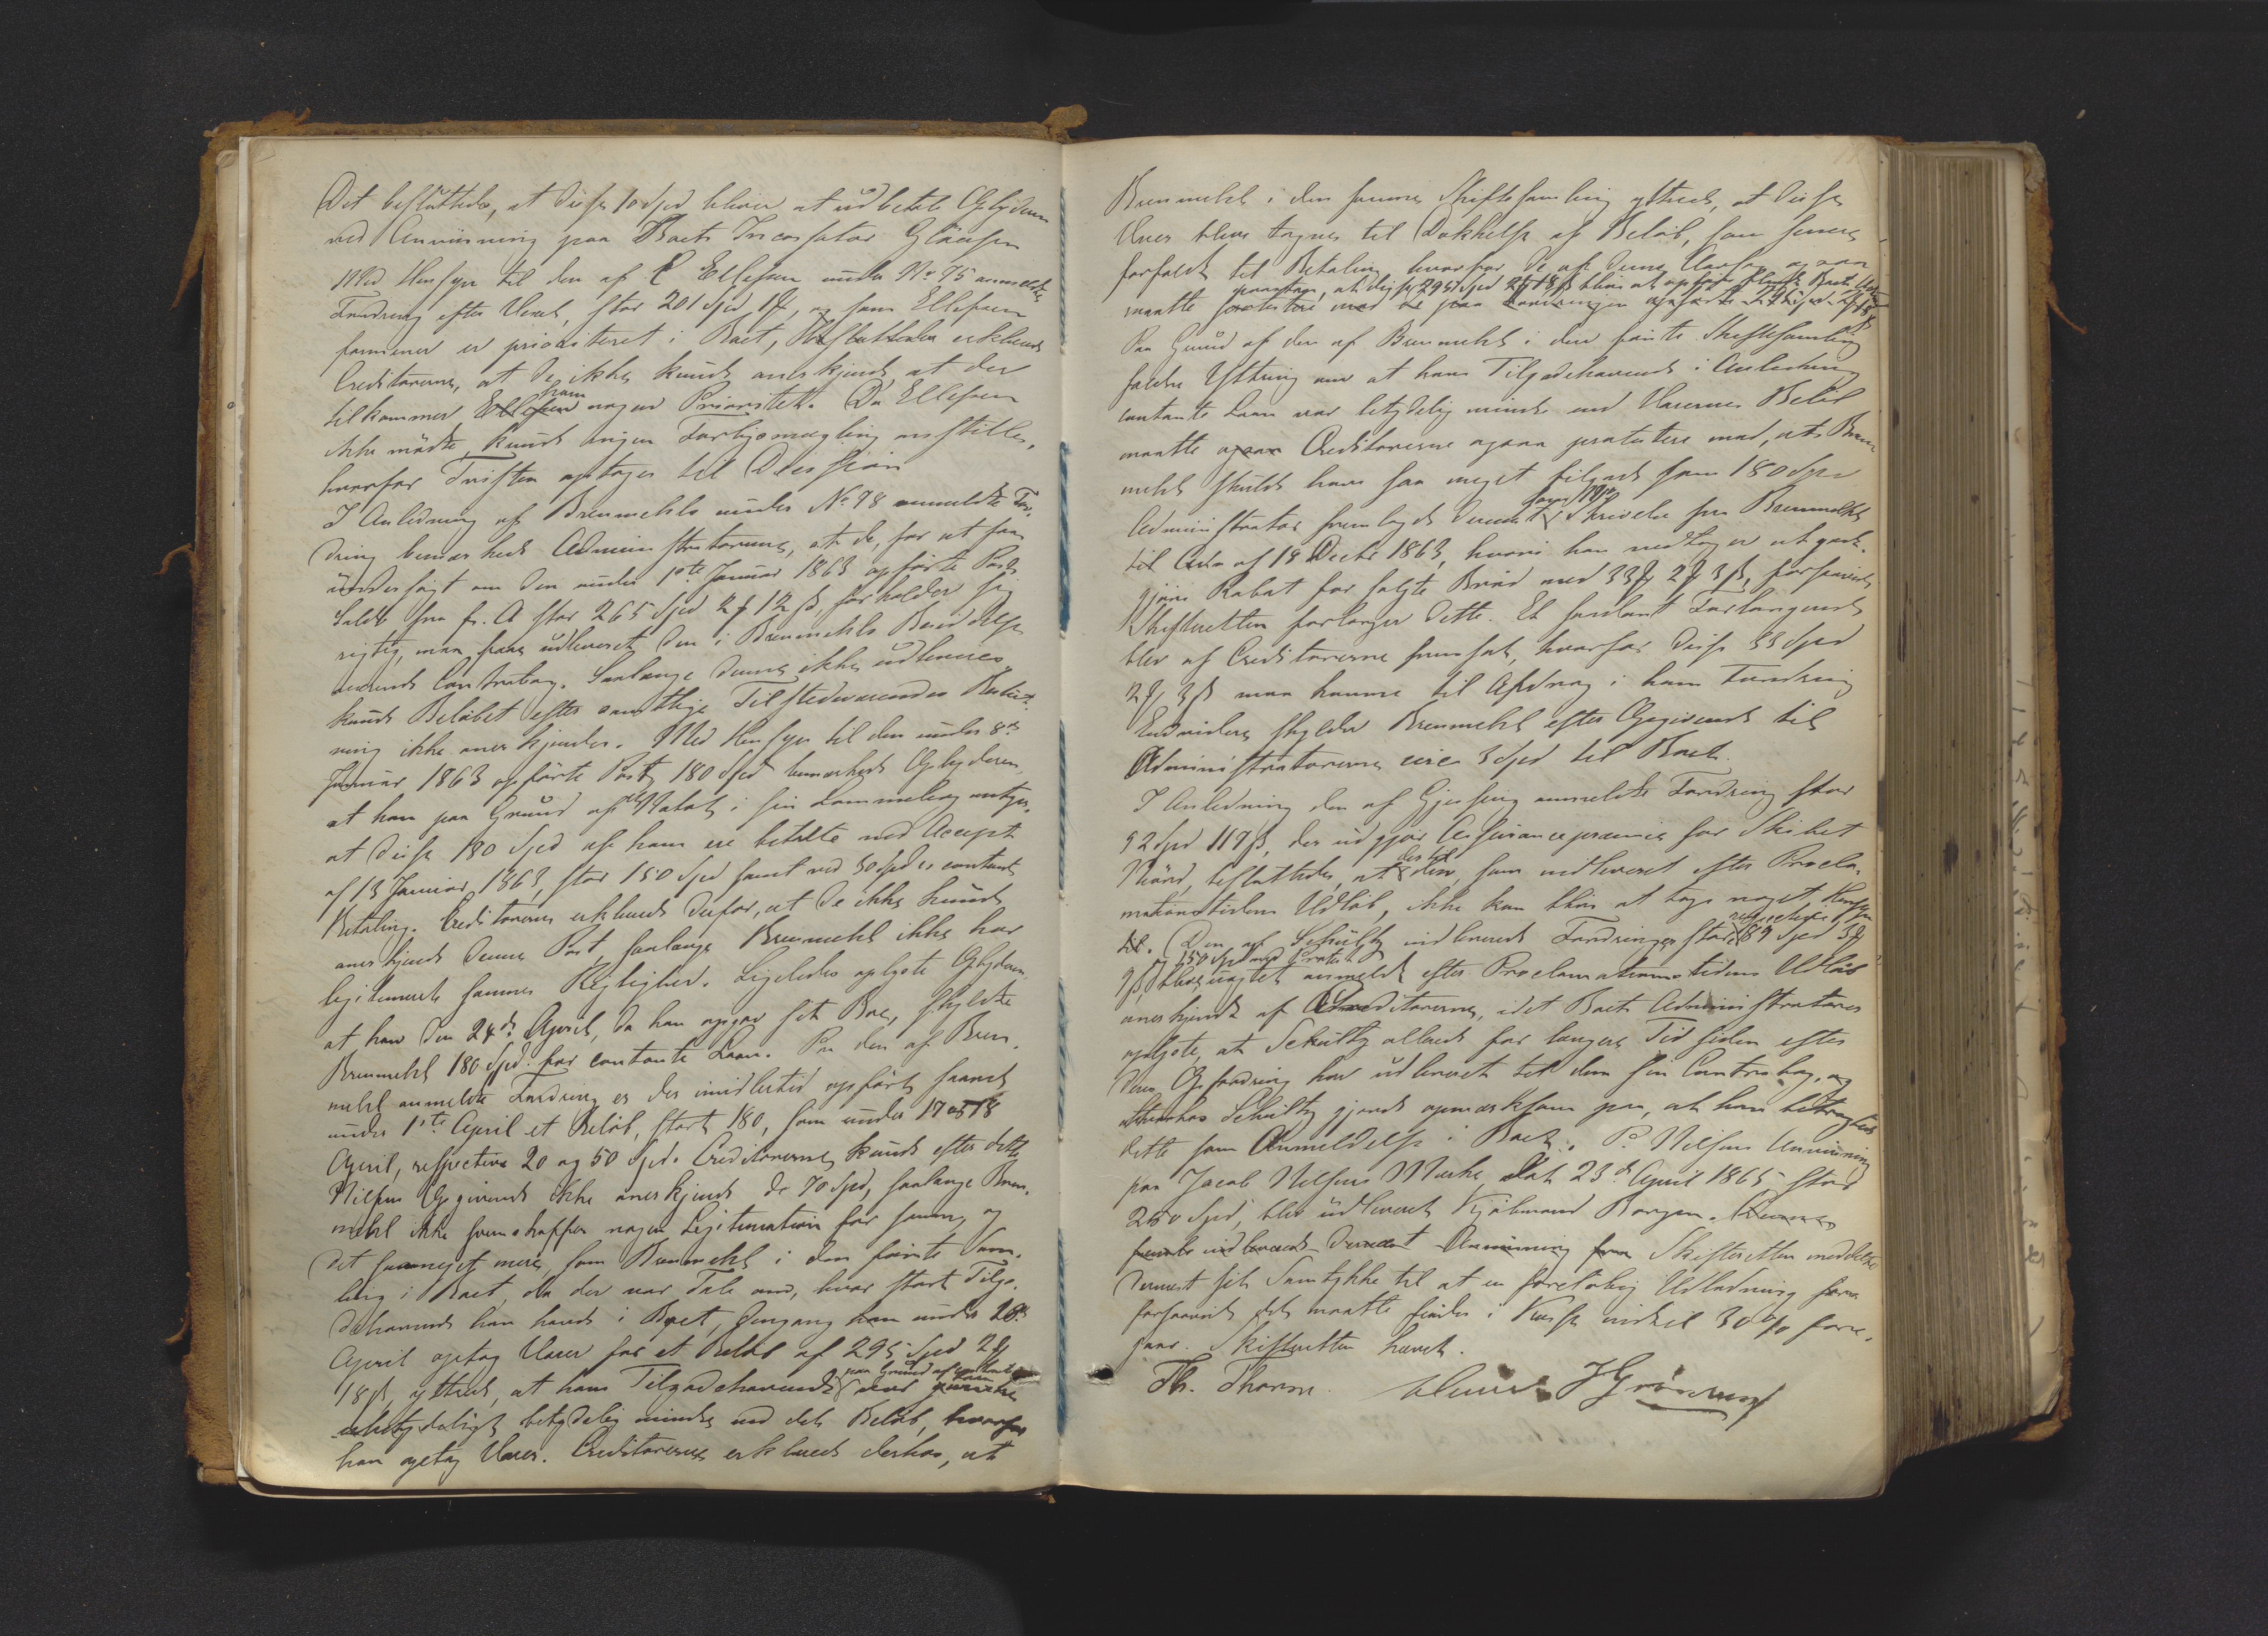 Det besluttedes, at disse 10 Spd bliver at udbetale Opbyderen
ved Anviisning paa Boets Incassator Gläersen
Med Hensyn til den af E Ellefsen under No 75 anmeldte
Fordring efter Vexel, stor 201 Spd 1 #, og som Ellefsen
formener er prioriteret i Boet, erklærede
Creditorerne, at de ikke kunde anerkjende, at der
tilkommer ham nogen Prioritet. Da Ellefsen
ikke mödte, kunde ingen Forligsmægling anstilles,
hvorfor Tvisten optages til Decision
I Anledning af Brunmehls under No 78 anmeldte For-
dring bemærkede Administratorerne, at de, for at faa
undersögt om den under 1ste Januar 1863 opförte Post
Saldo fra fr. A stor 265 Spd 2 # 12 ß, forholder sig
rigtig, maa faae udleveret den i Brunmehls Besiddelse
værende Contrabog. Saalænge denne ikke udleveres
kunde Belöbet efter samtlige Tilstedeværendes Mening
ikke anerkjendes. Med Hensyn til den under 8de
Januar 1863 opförte Post 180 Spd bemærkede Opbyderen,
at han paa Grund af et Notat i sin Lommebog antager,
at disse 180 Spd af ham ere betalte med Accept
af 13 Januar 1863, stor 150 Spd samt ved 30 Spd contant
Betaling. Creditorerne erklærede derfor, at de ikke kunde
anerkjende denne Post, saalænge Brunmehl ikke har
legitimeret sammes Rigtighed. Ligeledes oplyste Opbyderen
at han den 24de April, da han opgav sit Boe, skyldte
Brunmehl 180 Spd for contante Laan. Paa den af Brun-
mehl anmeldte Fordring er der imidlertid opfört saavel
under 1ste April et Belöb, stort 180, som under 17 og 18
April, respective 20 og 50 Spd. Creditorerne kunde efter dette
Nilsens Opgivende ikke anerkjende de 70 Spd, saalænge Brun-
mehl ikke fremskaffer nogen Legitimation for samme, og
det saameget mere, som Brunmehl i den förste Sam-
ling i Boet, da der var Tale om, hvor stort Tilgo-
dehavende han havde i Boet, dengang han under 18de
April optog Varer for et Belöb af 295 Spd 2 #
18 ß, yttrede, at hans Tilgodehavende paa Grund af contante Laan var
betydelig mindre end det Belöb, hvorfor
han optog Varer. Creditorerne erklærede derhos, at
Brunmehl i den samme Skiftesamling yttrede, at disse
Varer bleve tagne til Dækkelse af Belöb, som senere
forfaldt til Betaling hvorfor de af denne Aarsag ogsaa
maatte paastaae, at disse 295 Spd 2 # 18 ß bliver at opföre blandt Boets
Paa Grund af den af Brunmehl i den förste Skiftesamling
faldne Yttring om at hans Tilgodehavende i Anledning
contante Laan var betydelig mindre end Varernes Belöb
maatte Creditorerne ogsaa protestere mod, at Brun-
mehl skulde have saa meget tilgode som 180 Spd
Administrator fremlagde dernæst Skrivelse fra Brunmehl
til Adm af 18 Decbr 1863, hvori han vedtager at godt-
gjöre Rabat for solgte Bröd med 33 # 2 # 3 ß, forsaavidt
Skifteretten forlanger dette. Et saadant Forlangende
blev af Creditorerne fremsat, hvorfor disse 33 Spd
2 # 3 ß maa komme til Afdrag i hans Fordring
Endvidere skylder Brunmehl efter Opgivende til
Administratorerne circa 3 Spd til Boet.
I Anledning den af Gjessing anmeldte Fordring stor
92 Spd 119 ß, der udgjör Assurancepræmie for Skibet
Njörd, besluttedes, at der til den, som indleveret efter Procla-
mationstidens Udlöb, ikke kan blive at tage noget Hensyn
til. Den af Schultz indleverede Fordringer stor respective 189 Spd 3 #
9 ß, 150 Spd med Protest bliver, uagtet anmeldt efter Proclamationstidens Udlöb
anerkjendt af Creditorerne, idet Boets Administratorer
oplyste, at Schultz allerede for længere Tid siden efter
deres Opfordring har udleveret til dem sin Contrabog, og
derhos Schultz gjorde opmærksom paa, at han betragtede
dette som Anmeldelse i Boet. P. Nilsens Anviisning
paa Jacob Nilsens Mærke, dat 23de April 1865, stor
250 Spd, blev udleveret Kjöbmand Borgen.
Skifteretten meddelte
dernæst sit Samtykke til at en foreløbig Udlodning
forsaavidt det maatte findes i Kassen indtil 30 % fore-
gaar. Skifteretten hævet.
Th. Thorsen J Grönlund